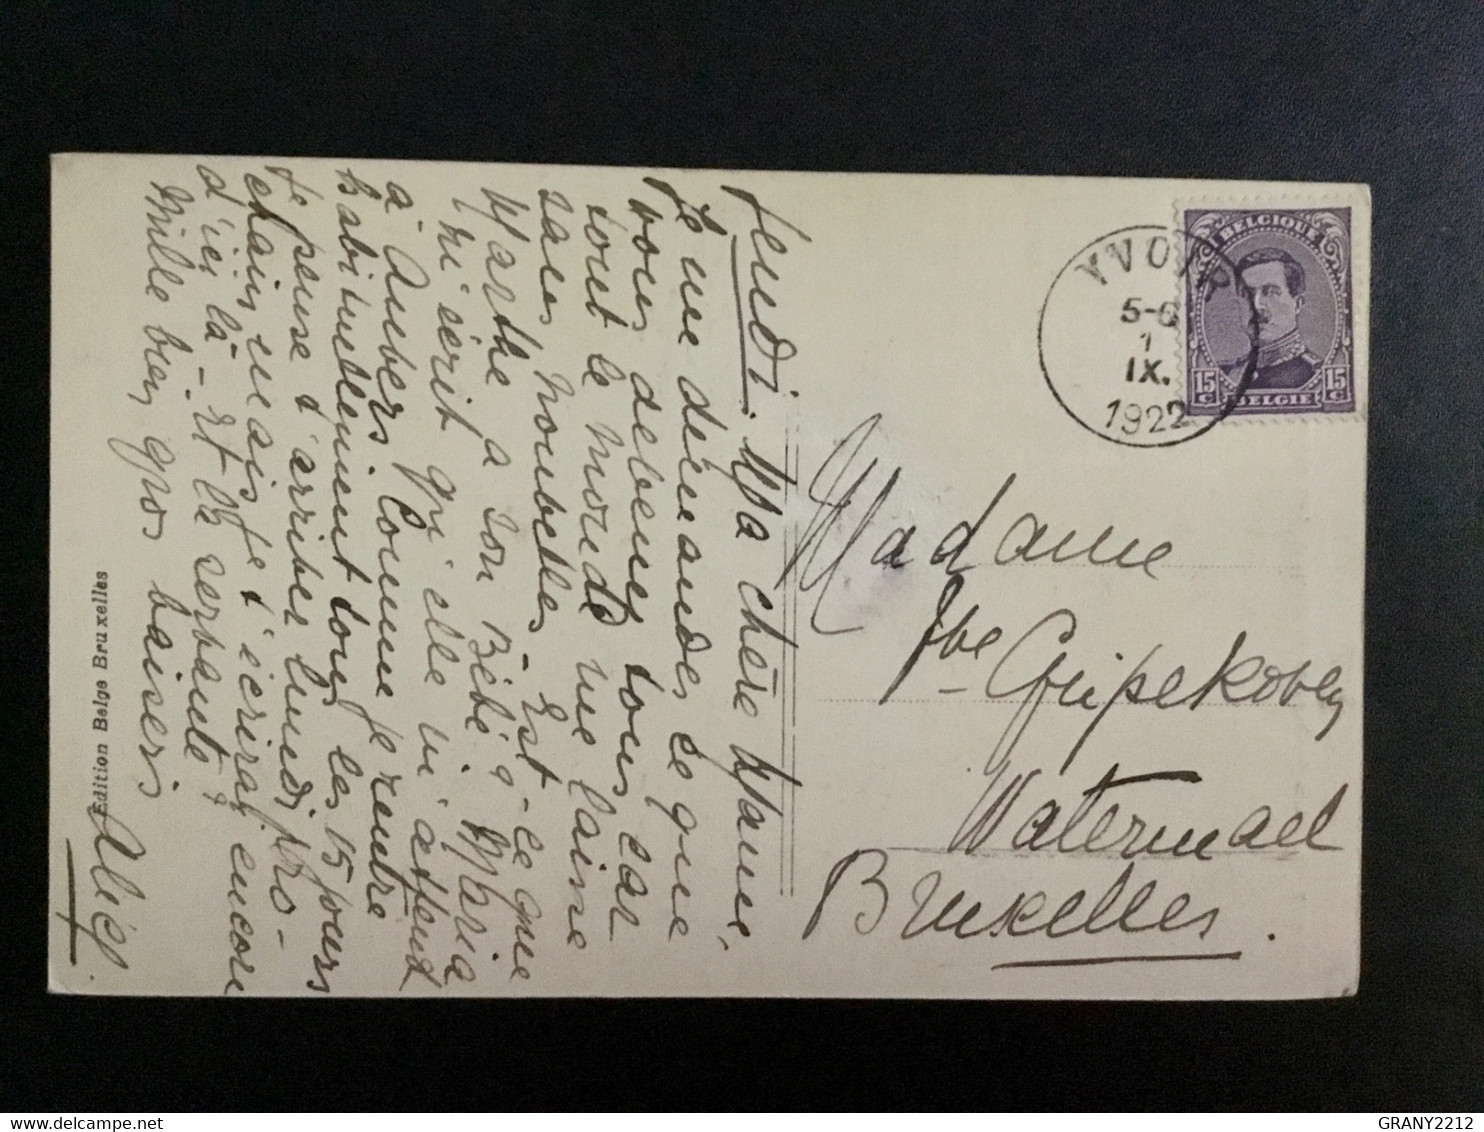 Jeudi. Ma chère Mame,
Je me demandes ce que
vous devenez tous car
tout le monde me laisse
sans nouvelles. Est-ce que
Marthe a son Bébé? Maria
m'écrit qu'elle m'attend
à Anvers comme je rentre
habituelement tous les 15 jours
Je pense d'arriver lundi pro-
chain mais je t'écrirai encore
d'ici là - Et la servante?
Mille bien gros baisers
Alice.
Édition Belge Bruxelles
YVOIR
5-6
1
IX.
1922
BELGIQUE
15 C 15 C
BELGIE
Madame
Vve Gripekoven
Watermael
Bruxelles.
GRANY2212